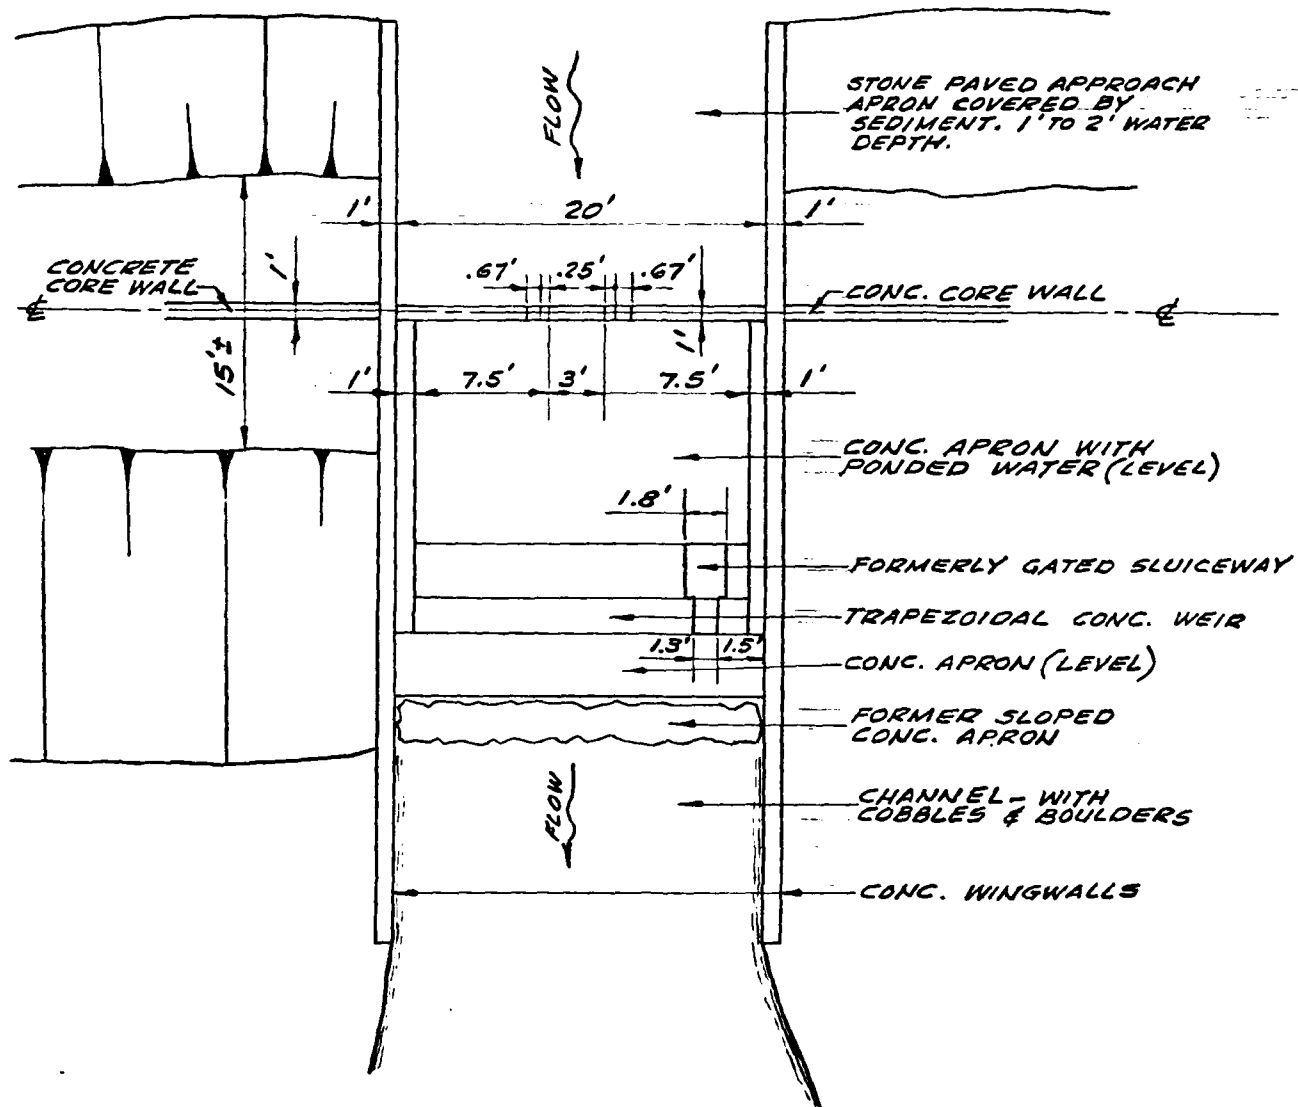 STONE PAVED APPROACH
APRON COVERED BY
SEDIMENT. 1' TO 2' WATER
DEPTH.
FLOW
1' 20' 1'
CONCRETE
CORE WALL
1'
.67' .25' .67'
CONC. CORE WALL
℄ ℄
15'±
1'
1' 7.5' 3' 7.5' 1'
CONC. APRON WITH
PONDED WATER (LEVEL)
1.8'
FORMERLY GATED SLUICEWAY
TRAPEZOIDAL CONC. WEIR
1.3' 1.5'
CONC. APRON (LEVEL)
FORMER SLOPED
CONC. APRON
FLOW
CHANNEL - WITH
COBBLES & BOULDERS
CONC. WINGWALLS